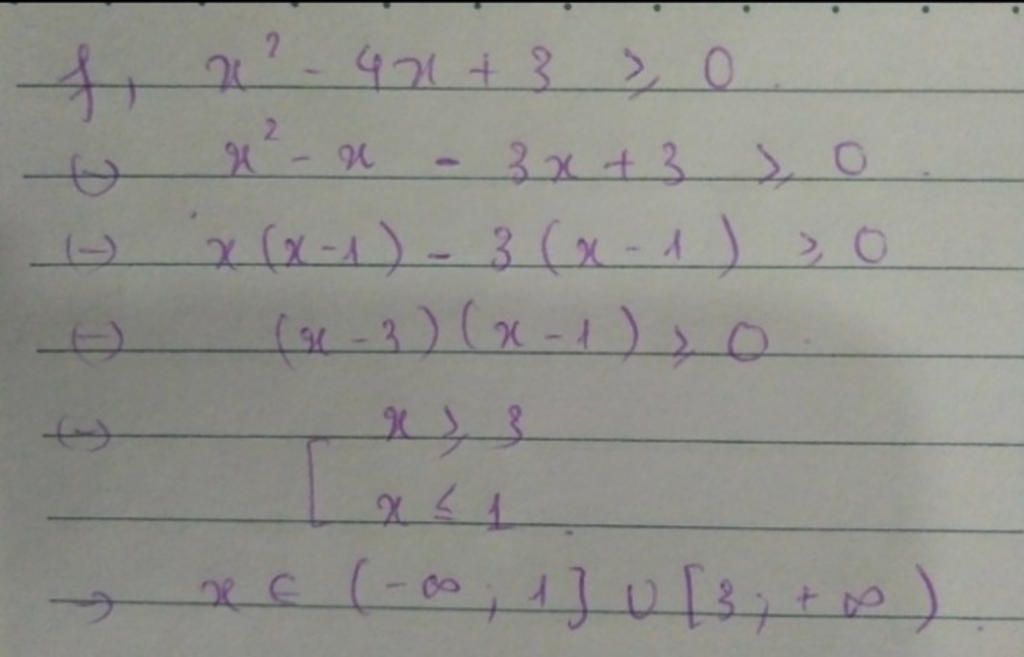 f, x² - 4x + 3 ≥ 0.
(-) x² - x - 3x + 3 ≥ 0.
(-) x(x-1) - 3(x-1) ≥ 0
(-) (x-3)(x-1) ≥ 0.
(-) [ x ≥ 3
x ≤ 1.
→ x ∈ (-∞; 1] ∪ [3; +∞).